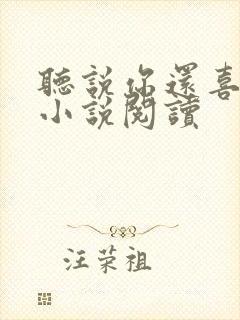 聽説你還喜
小説閱讀
汪荣祖